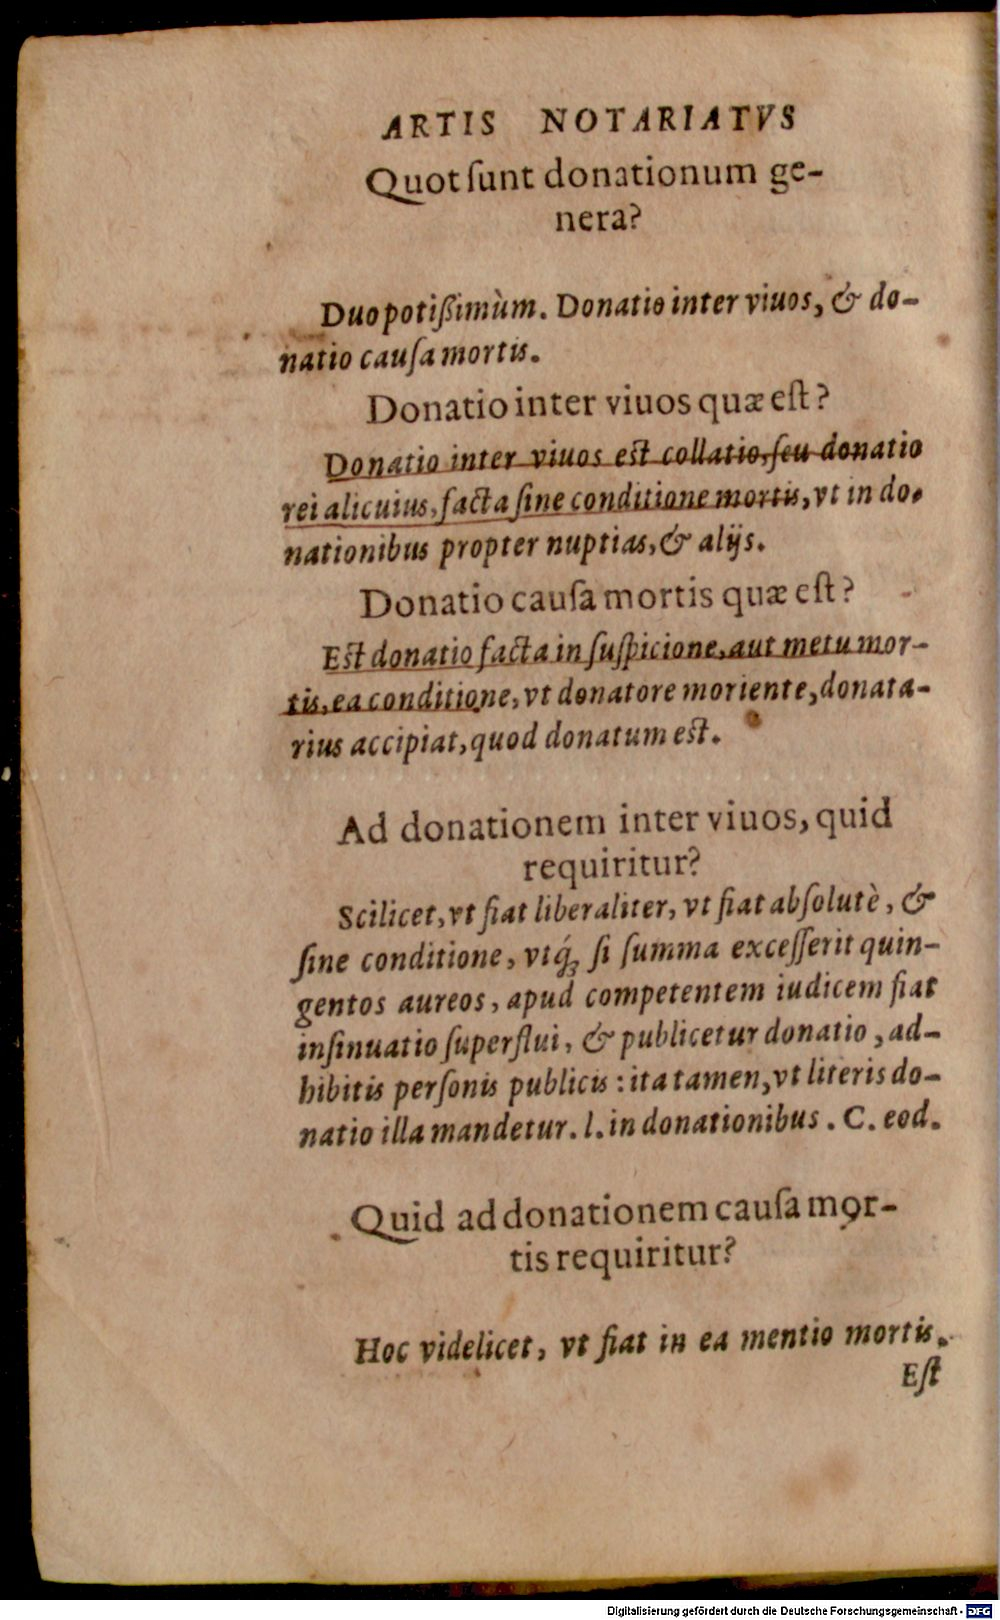 ARTIS NOTARIATVS
Quot ſunt donationum ge-
nera?
Duo potiſsimùm. Donatio inter viuos, & do-
natio cauſa mortis.
Donatio inter viuos quæ eſt?
Donatio inter viuos eſt collatio, ſeu donatio
rei alicuius, facta ſine conditione mortis, vt in do-
nationibus propter nuptias, & alijs.
Donatio cauſa mortis quæ eſt?
Eſt donatio facta in ſuſpicione, aut metu mor-
tis, ea conditione, vt donatore moriente, donata-
rius accipiat, quod donatum eſt.
Ad donationem inter viuos, quid
requiritur?
Scilicet, vt fiat liberaliter, vt fiat abſolutè, &
ſine conditione, vtq́; ſi ſumma exceſſerit quin-
gentos aureos, apud competentem iudicem fiat
inſinuatio ſuperflui, & publicetur donatio, ad-
hibitis perſonis publicis: ita tamen, vt literis do-
natio illa mandetur. l. in donationibus. C. eod.
Quid ad donationem cauſa mor-
tis requiritur?
Hoc videlicet, vt fiat in ea mentio mortis.
Eſt
Digitalisierung gefördert durch die Deutsche Forschungsgemeinschaft - DFG